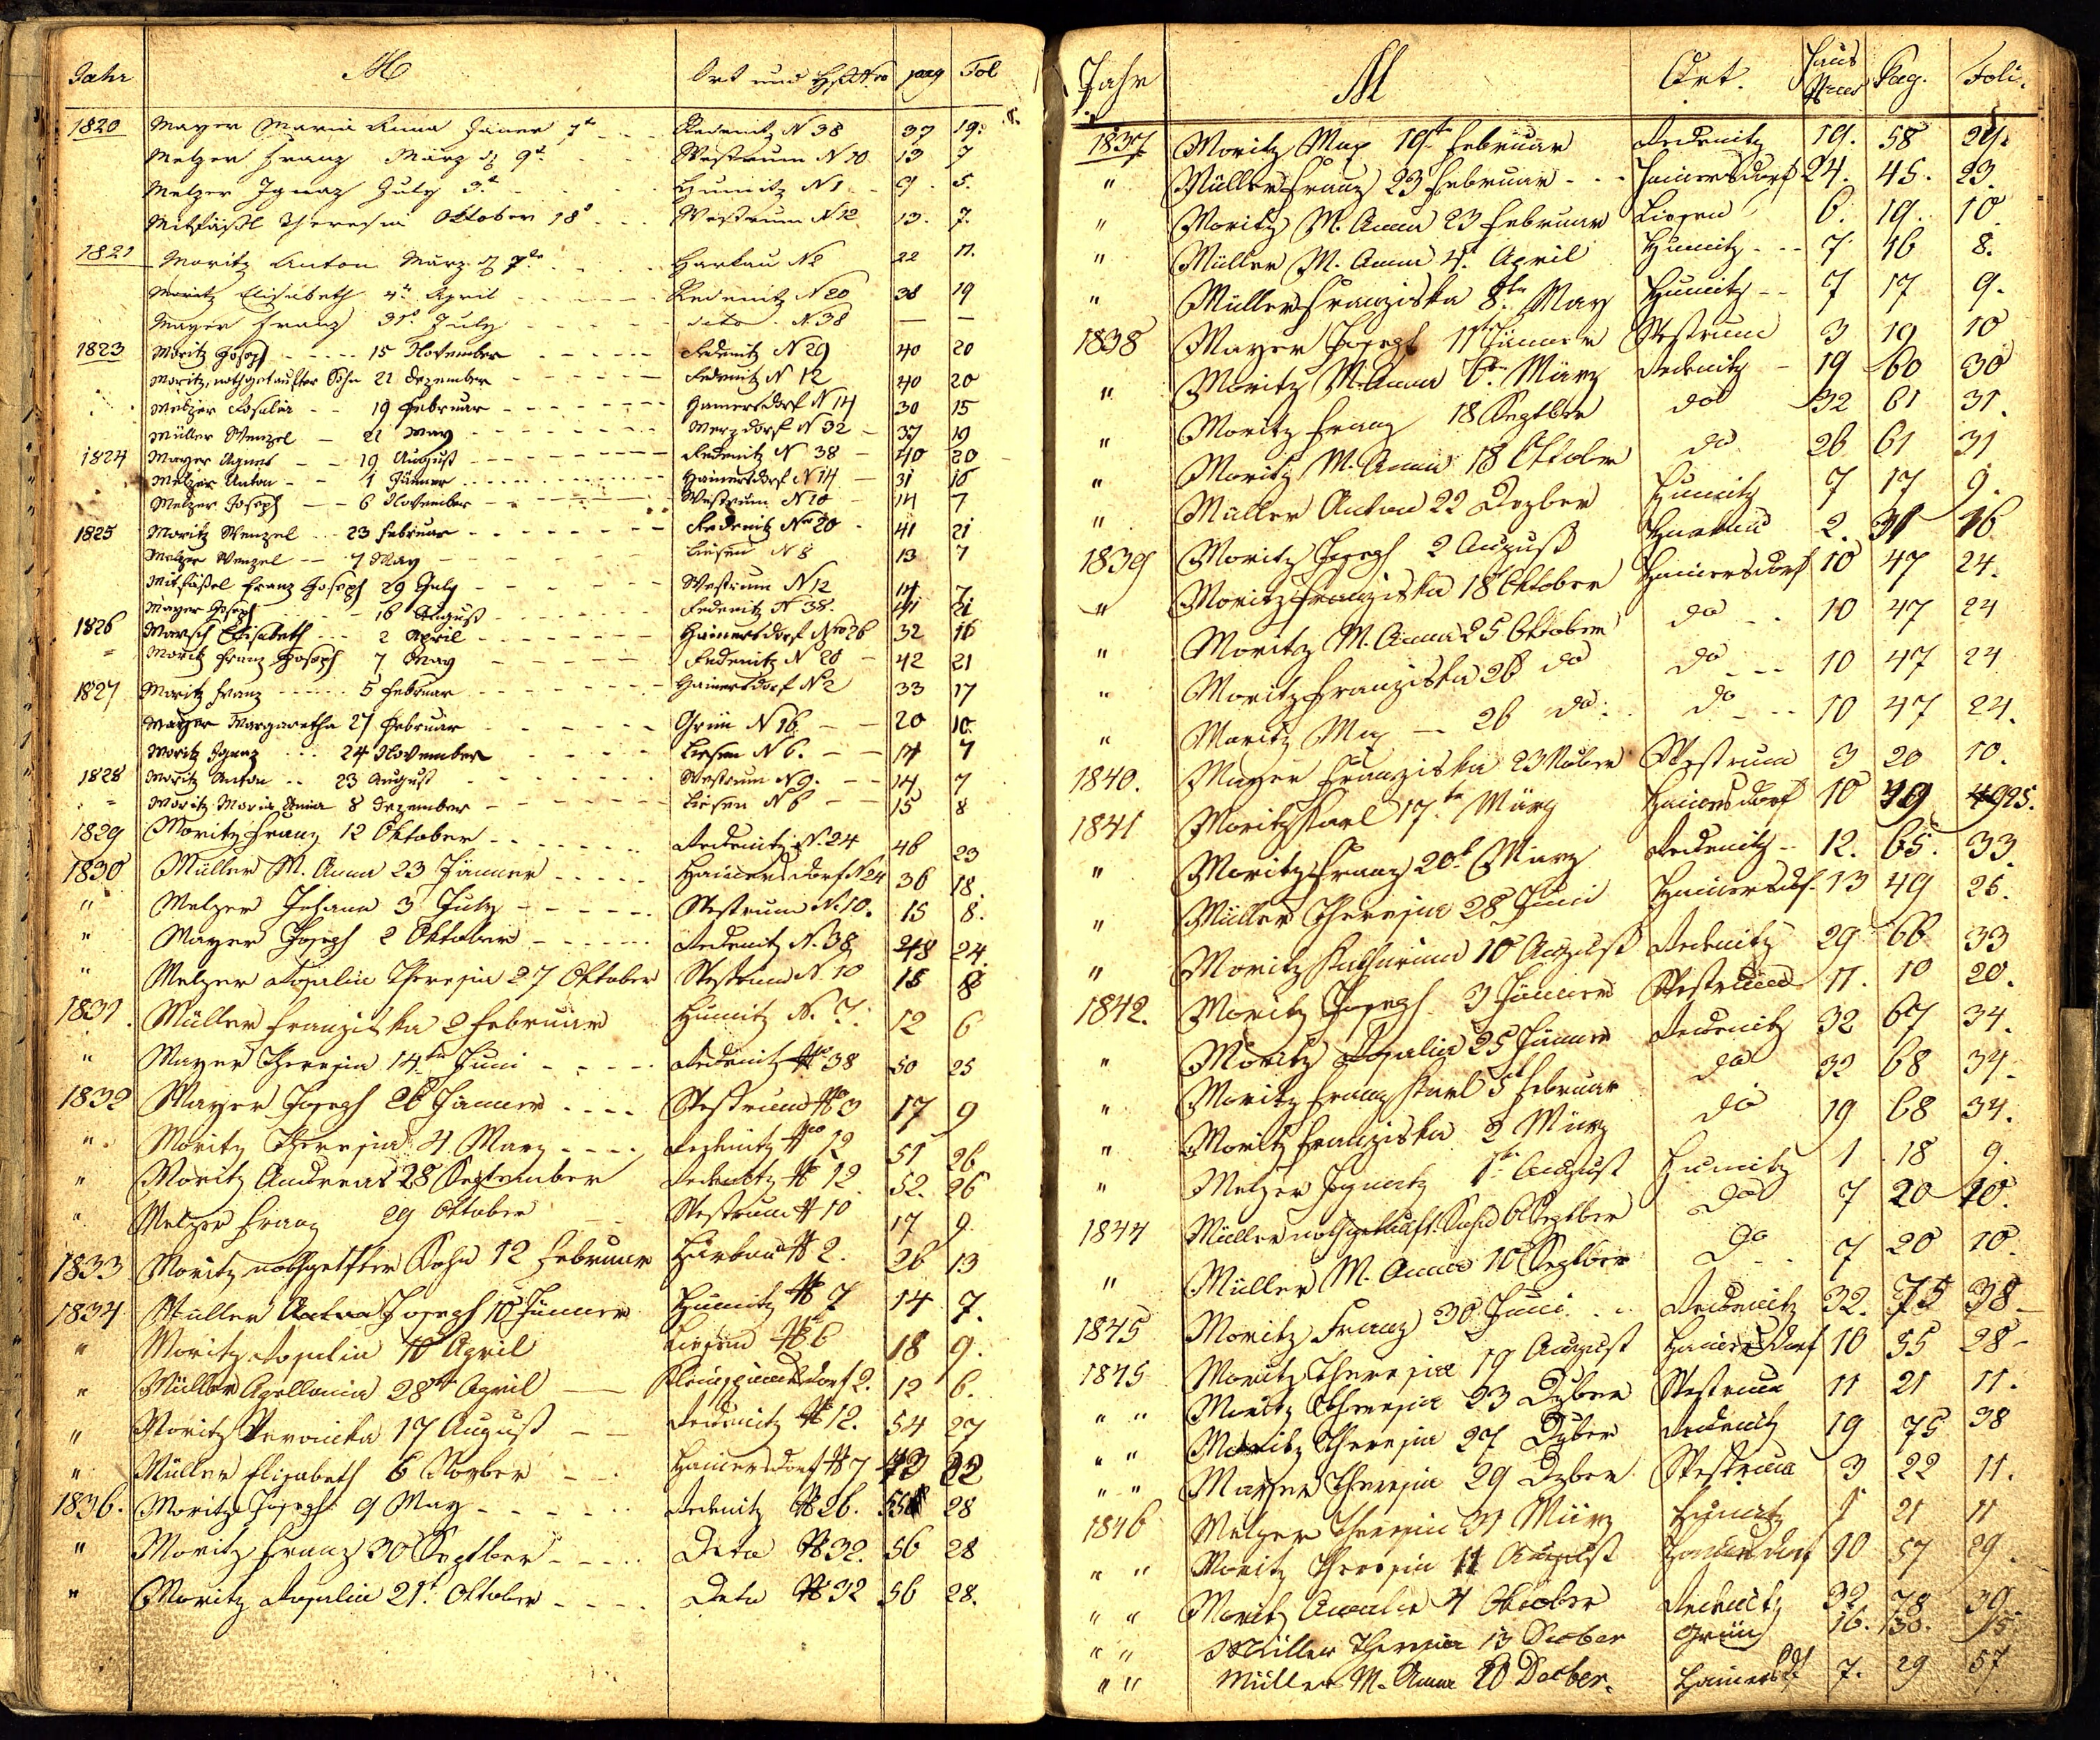 Jahr M Ort und Hs. Nro pag Fol
1820 Mayer Maria Anna Jäner 7t Redenitz N 38 37 19.
Melzer Franz März d 9t Westrum N 10 13 7
Melzer Ignaz July 3t Humitz N 1 9. 5.
Theresia Oktober 18t Westrum N 12 13. 7.
1821 Moritz Anton März d 7t Harkau N 2 22 11.
Moritz Elisabeth 4t April Redenitz N 20 38 19
Mayer Franz 31t July dito N. 38 — —
1823 Moritz Joseph 15 November Redenitz N 20 40 20
Moritz, nothgetaufter Sohn 21 Dezember Redenitz N 12 40 20
Melzer Rosalia 19 Februar Hainersdorf N 14 30 15
Müller Wenzel 21 May Merzdorf N 32 37 19
1824 Mayer Agnes 19 August Redenitz N 38 40 20
Melzer Anton 4 Jänner Hainersdorf N 14 31 16
Melzer Joseph 6 November Westrum N 10 14 7
1825 Moritz Wenzel 23 Februar Redenitz Nro 20 41 21
Melzer Wenzel 7 May Liesen N 8 13 7
Franz Joseph 29 July Westrum N 12 14 7
Mayer Joseph 16 August Redenitz N 38. 41 21
1826 Marsch Elisabeth 2 April Hainersdorf Nro 26 32 16
" Moritz Franz Joseph 7 May Redenitz N 20 42 21
1827 Moritz Franz 5 Februar Hainersdorf N 2 33 17
Mayer Margaretha 27 Februar Grün N 16 20 10
Moritz Ignaz 24 November Liesen N 6. 14 7
1828 Moritz Anton 23 August Westrum N 9. 14 7
" Moritz Maria Anna 8 Dezember Liesen N 6 15 8
1829 Moritz Franz 12 Oktober Redenitz N. 24 46 23
1830 Müller M. Anna 23 Jänner Hainersdorf N 24 36 18.
" Melzer Johann 3 July Westrum N. 10. 15 8.
" Mayer Joseph 2 Oktober Redenitz N. 38 48 24.
" Melzer Rosalia Theresia 27 Oktober Westrum N. 10 15 8
1831. Müller Franziska 2 Februar Humitz N. 7. 12 6
" Mayer Theresia 14ten Juni Redenitz No 38 50 25
1832 Mayer Joseph 26 Jänner Westrum No 3 17 9
" Moritz Theresia 4 März Redenitz No 12 51 26
" Moritz Andreas 28 September Redenitz No 12 52. 26
" Melzer Franz 29 Oktober Westrum No 10 17 9.
1833 Moritz nothgetfter Sohn 12 Februar Harkau No 2. 26 13
1834 Müller Joseph 10 Jänner Humitz No 7 14 7.
" Moritz Rosalia 10 April Liesen No 6 18 9.
" Müller Apollonia 28ten April 2. 12 6.
" Moritz Veronika 17 August Redenitz No 12. 54 27
" Müller Elisabeth 6 Novber Hainersdorf No 7 43 22
1836. Moritz Joseph 9 May Redenitz No 26. 55 28
" Moritz Franz 30 Septber Deto No 32. 56 28
" Moritz Rosalia 21t Oktober Deto No 32 56 28.
Jahr M Ort. Haus Nro Pag. Foli.
1837 Moritz Max 19te Februar Redenitz 19. 58 29.
" Müller Franz 23 Februar Hainersdorf 24. 45. 23.
" Moritz M. Anna 23 Februar Liesen 6. 19. 10
" Müller M. Anna 4. April Humitz 7 16 8.
" Müller Franziska 8te May Humitz 7 17 9.
1838 Mayer Joseph 11te Jänner Westrum 3 19 10
" Moritz M. Anna 6te März Redenitz 19 60 30
" Moritz Franz 18 Septber do 32 61 31.
" Moritz M. Anna 18 Oktober do 26 61 31
" Müller Anton 22 Dezber Humitz 7 17 9.
1839 Moritz Joseph 2 August Harkau 2. 31 16
" Moritz Franziska 18 Oktober Hainersdorf 10 47 24.
" Moritz M. Anna 25 Oktober do 10 47 24
" Moritz Franziska 26 do do 10 47 24
" Moritz Max 26 do. do 10 47 24.
1840. Mayer Franziska 23 Nvber Westrum 3 20 10.
1841 Moritz Karl 17te März Hainersdorf 10 49 25.
" Moritz Franz 20t März Redenitz 12. 65. 33.
" Müller Theresia 28 Juni Hainersdf. 13 49 25.
" Moritz Katharina 10 August Redenitz 29 66 33
1842. Moritz Joseph 3 Jänner Westrum 11. 10 20.
" Moritz Rosalia 25 Jänner Redenitz 32 67 34.
" Moritz Franz Karl 5t Februar do 32 68 34.
" Moritz Franziska 2 März do 19 68 34.
" Melzer Ignatz 1te August Humitz 1 18 9.
1844 Müller nothgetauft. Sohn Septber do 7 20 10.
" Müller M. Anna 10 Septber do 7 20 10.
1845 Moritz Franz 30 Juni Redenitz 32. 75 38
1845 Moritz Theresia 19 August Hainersdorf 10 55 28
" " Moritz Theresia 23 Dzber Westrum 11 21 11.
" " Moritz Theresia 27 Dzber Redenitz 19 75 38
" " Mayer Theresia 29 Dzber Westrum 3 22 11.
1846 Melzer Theresia 31 März Humitz 1 21 11
" " Moritz Theresia 11 August Hainersdorf 10 57 29.
" " Moritz Amalia 4 Oktober Redenitz 32. 78 39
" " Müller Theresia 13 Grün 16. 130. 15
" " Müller M. Anna 20 Decber. Hainersdf 7. 29 57